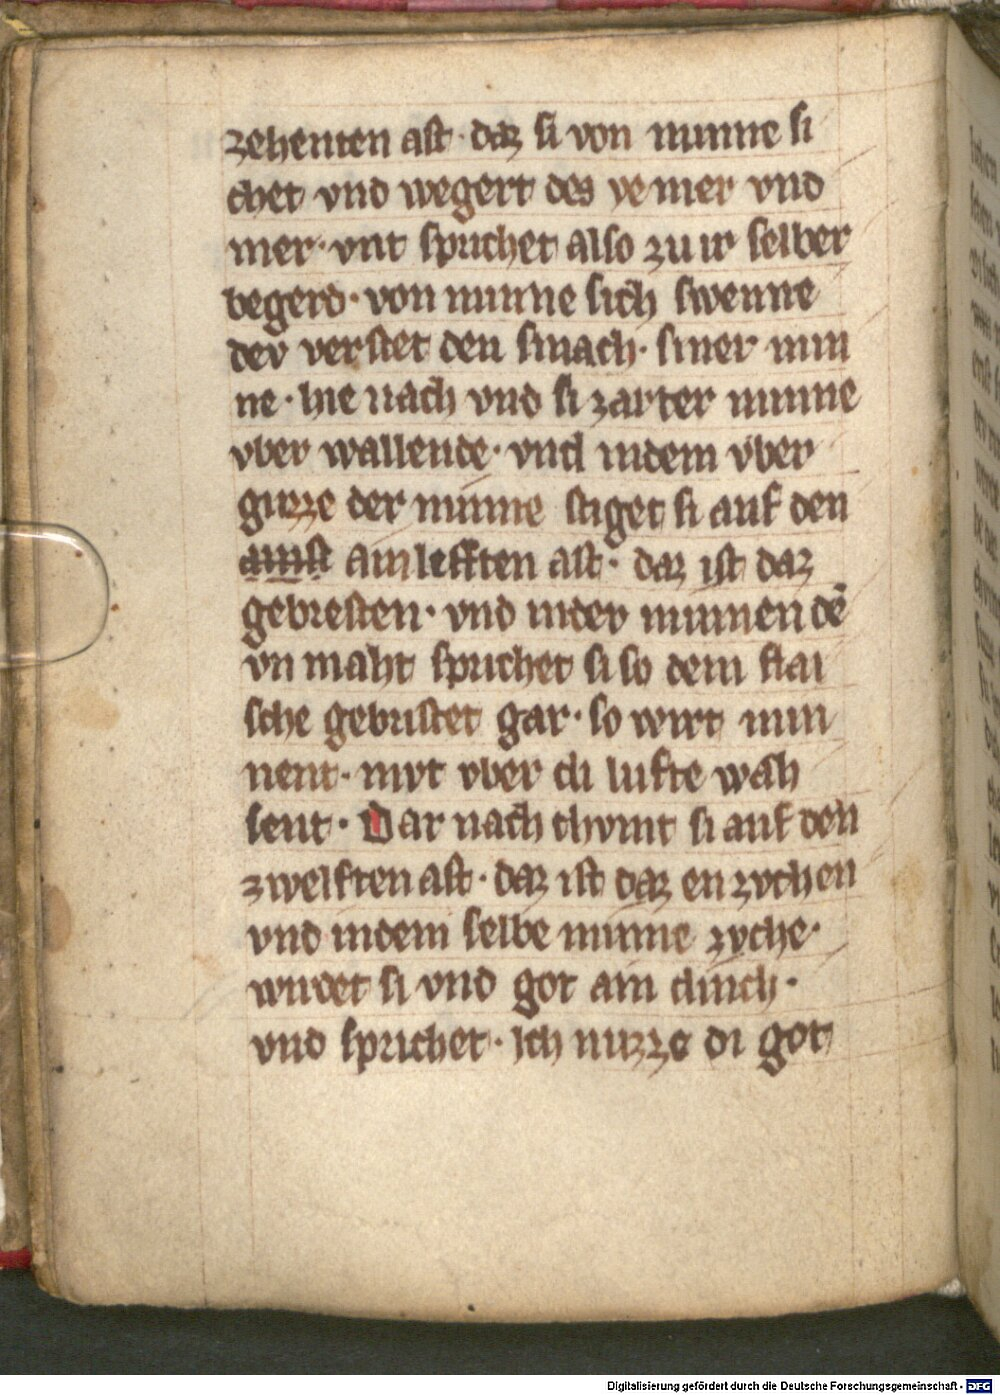 zehenten ast · daz si von minne si
chet vnd wegert des ye mer vnd
mer · vnt sprichet also zu ir selber
begerd · von minne sich swenne
der verstet den smach · siner min
ne · hie nach vnd si zarter minne
vber wallende · vnd indem vber
guzze der minne stiget si auf den
ainst ainlefften ast · daz ist daz
gebresten · vnd inder minnen dē
vn maht sprichet si so dem flai
sche gebristet gar · so wirt min
nent · mvt vber di lufte wah
sent · Dar nach chvmt si auf den
zwelften ast · daz ist daz en zvchen
vnd indem selbe minne zvche ·
wirdet si vnd got ain dinch ·
vnd sprichet · ich nuzze di got
Digitalisierung gefördert durch die Deutsche Forschungsgemeinschaft - DFG